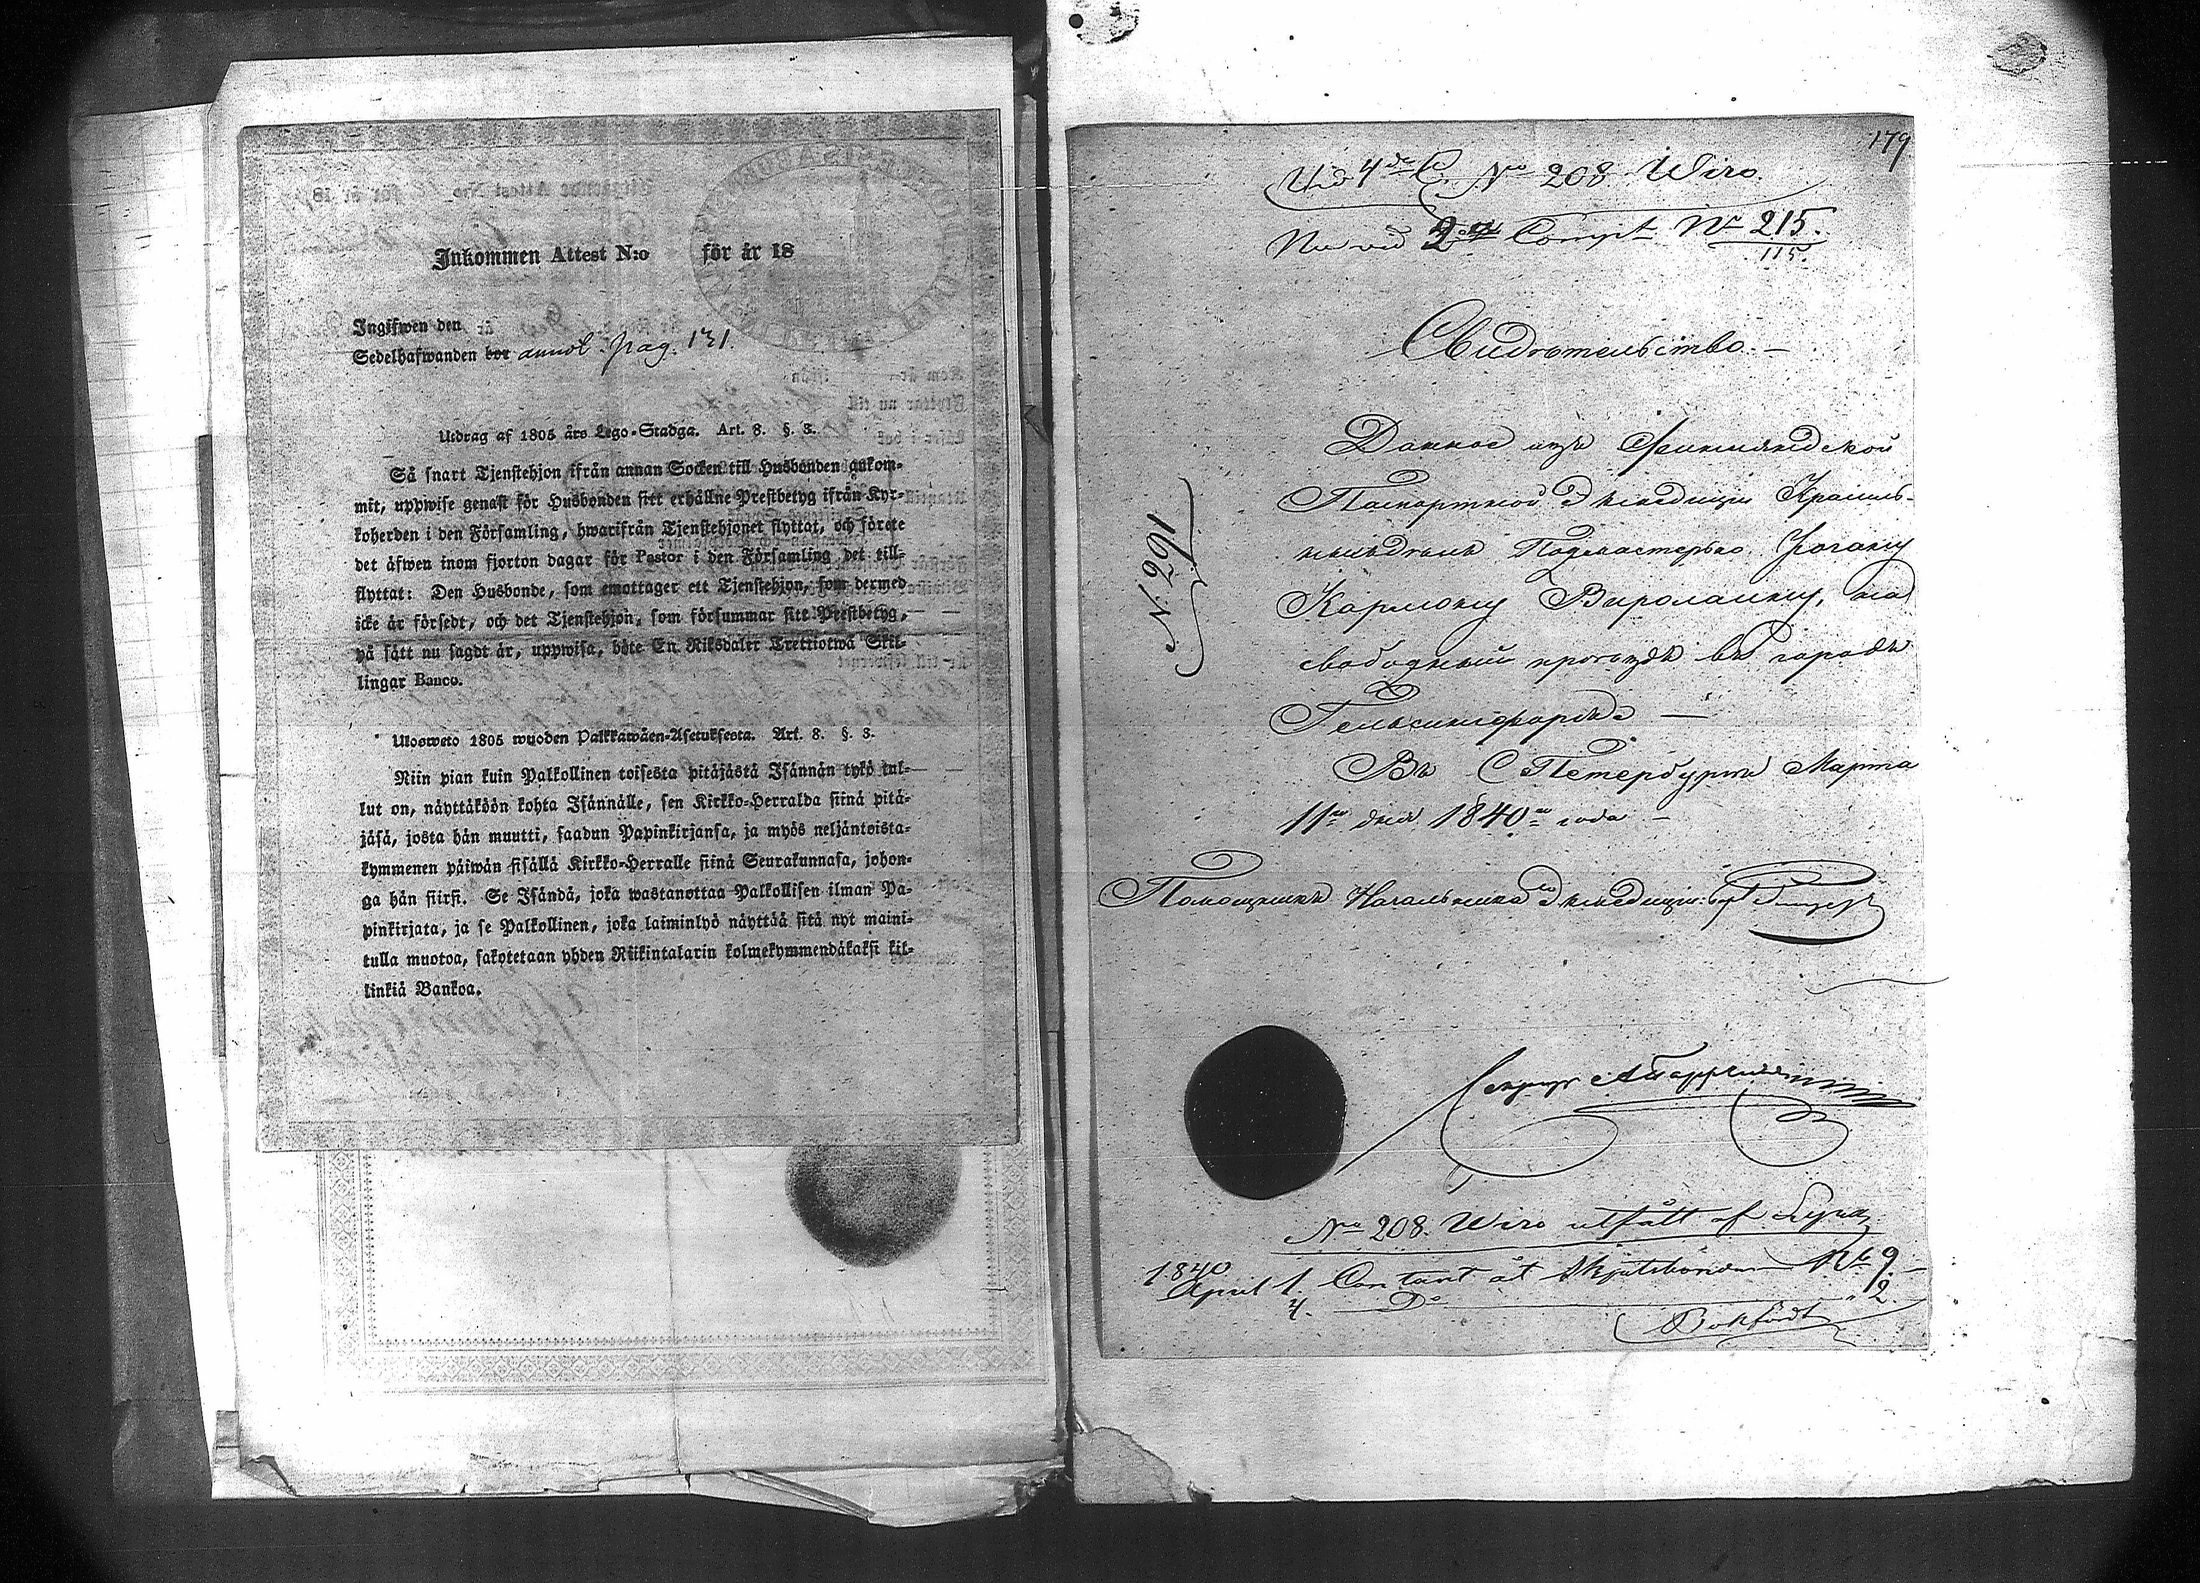 Inkommen Attest N:o för år 18
Ingifwen den
Sedelhafwanden bor annot. pag. 131.
Utdrag af 1805 års Lego-Stadga. Art. 8. §. 3.
Så snart Tjenstehjon ifrån annan Socken till Husbonden ankom-
mit, uppwise genast för Husbonden sitt erhållne Prestbetyg ifrån Kyr-
koherden i den Församling, hwarifrån Tjenstehjonet flyttat, och förete
det äfwen inom fjorton dagar för Pastor i den Församling det till-
flyttat: Den Husbonde, som emottager ett Tjenstehjon, som dermed
icke är försedt, och det Tjenstehjon, som försummar sitt Prestbetyg,
på sätt nu sagdt är, uppwisa, böte En Riksdaler Trettiotwå Skil-
lingar Banco.
Ulosweto 1805 wuoden Palkkawäen-Asetuksesta. Art. 8. §. 3.
Niin pian kuin Palkollinen toisesta pitäjästä Isännän tykö tul-
lut on, näyttäköön kohta Isännälle, sen Kirkko-Herralda siinä pitä-
jäsä, josta hän muutti, saadun Papinkirjansa, ja myös neljäntoista-
kymmenen päiwän sisällä Kirkko-Herralle siinä Seurakunnasa, johon-
ga hän siirsi. Se Isändä, joka wastanottaa Palkollisen ilman Pa-
pinkirjata, ja se Palkollinen, joka laiminlyö näyttää sitä nyt maini-
tulla muotoa, sakotetaan yhden Riikintalarin kolmekymmendäkaksi kil-
linkiä Bankoa.
179
Vid 4de C. No 208 Wiro
Nu vid 2dra Compt. No 215.
115.
Свидѣтельство. —
N. 2691
Данное изъ Финляндской
Паспортной Экспедиціи Красиль-
ныхъ дѣлъ Подмастерью Іогану
Карлону Виролаину, на
свободный проѣздъ въ городъ
Гельсингфорсъ —
Въ С Петербургѣ Марта
11го дня 1840го года —
Помощникъ Начальника Экспедиціи
No 208. Wiro utfått af
1840
April 1. Contant åt Skjutsbonden 9
4. Do 2.